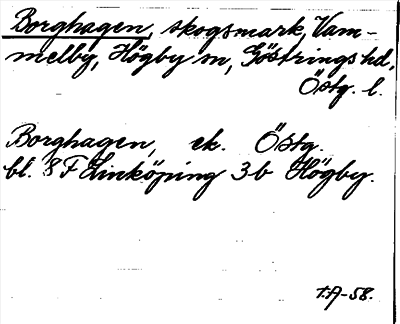 Borghagen, skogsmark, Vam-
melby, Högby sn, Göstrings hd,
Östg. l.
Borghagen, ek. Östg.
bl. 8 F Linköping 3b Högby.
t.A-58.